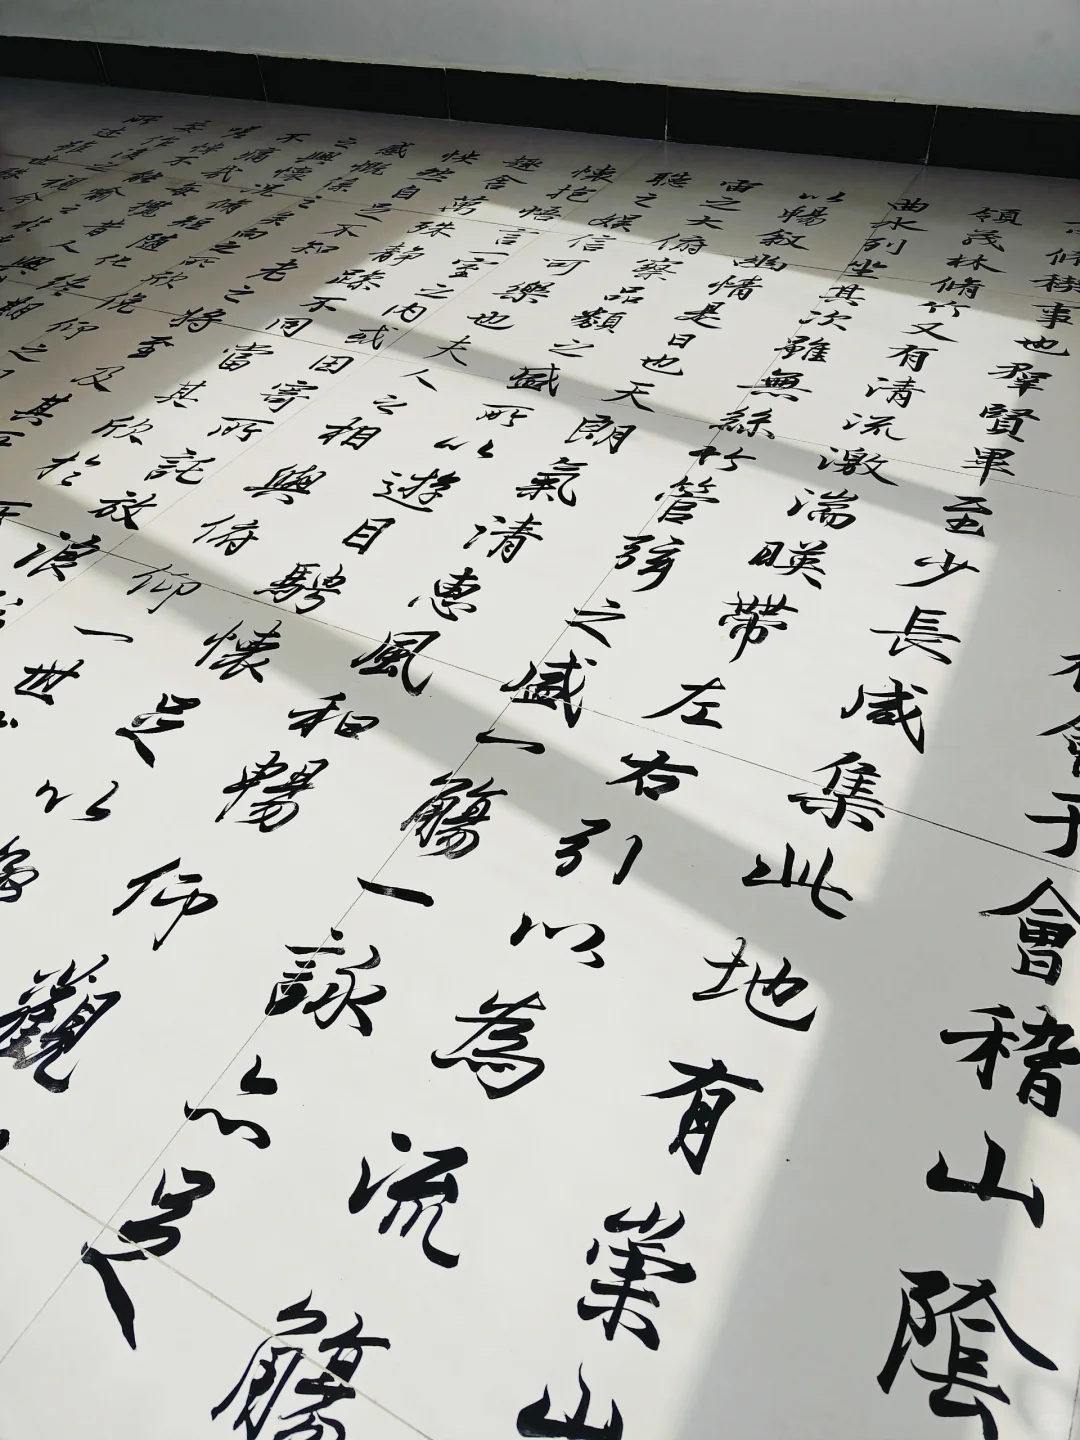 會于會稽山陰
脩稧事也羣賢畢至少長咸集此地有崇山
領茂林脩竹又有清流激湍暎帶左右引以為流觴
曲水列坐其次雖無絲竹管弦之盛一觴一詠亦足
以暢敘幽情是日也天朗氣清惠風和暢仰觀
宙之大俯察品類之盛所以遊目騁懷足以
聽之娛信可樂也夫人之相與俯仰一世
懷抱悟言一室之內或因寄所託放浪
趣舍萬殊靜躁不同當其欣於
快然自足不知老之將至及其
感慨係之矣向之所欣俛仰之
之興懷況脩短隨化終期
不痛哉每攬昔人興
嗟悼不能喻之於